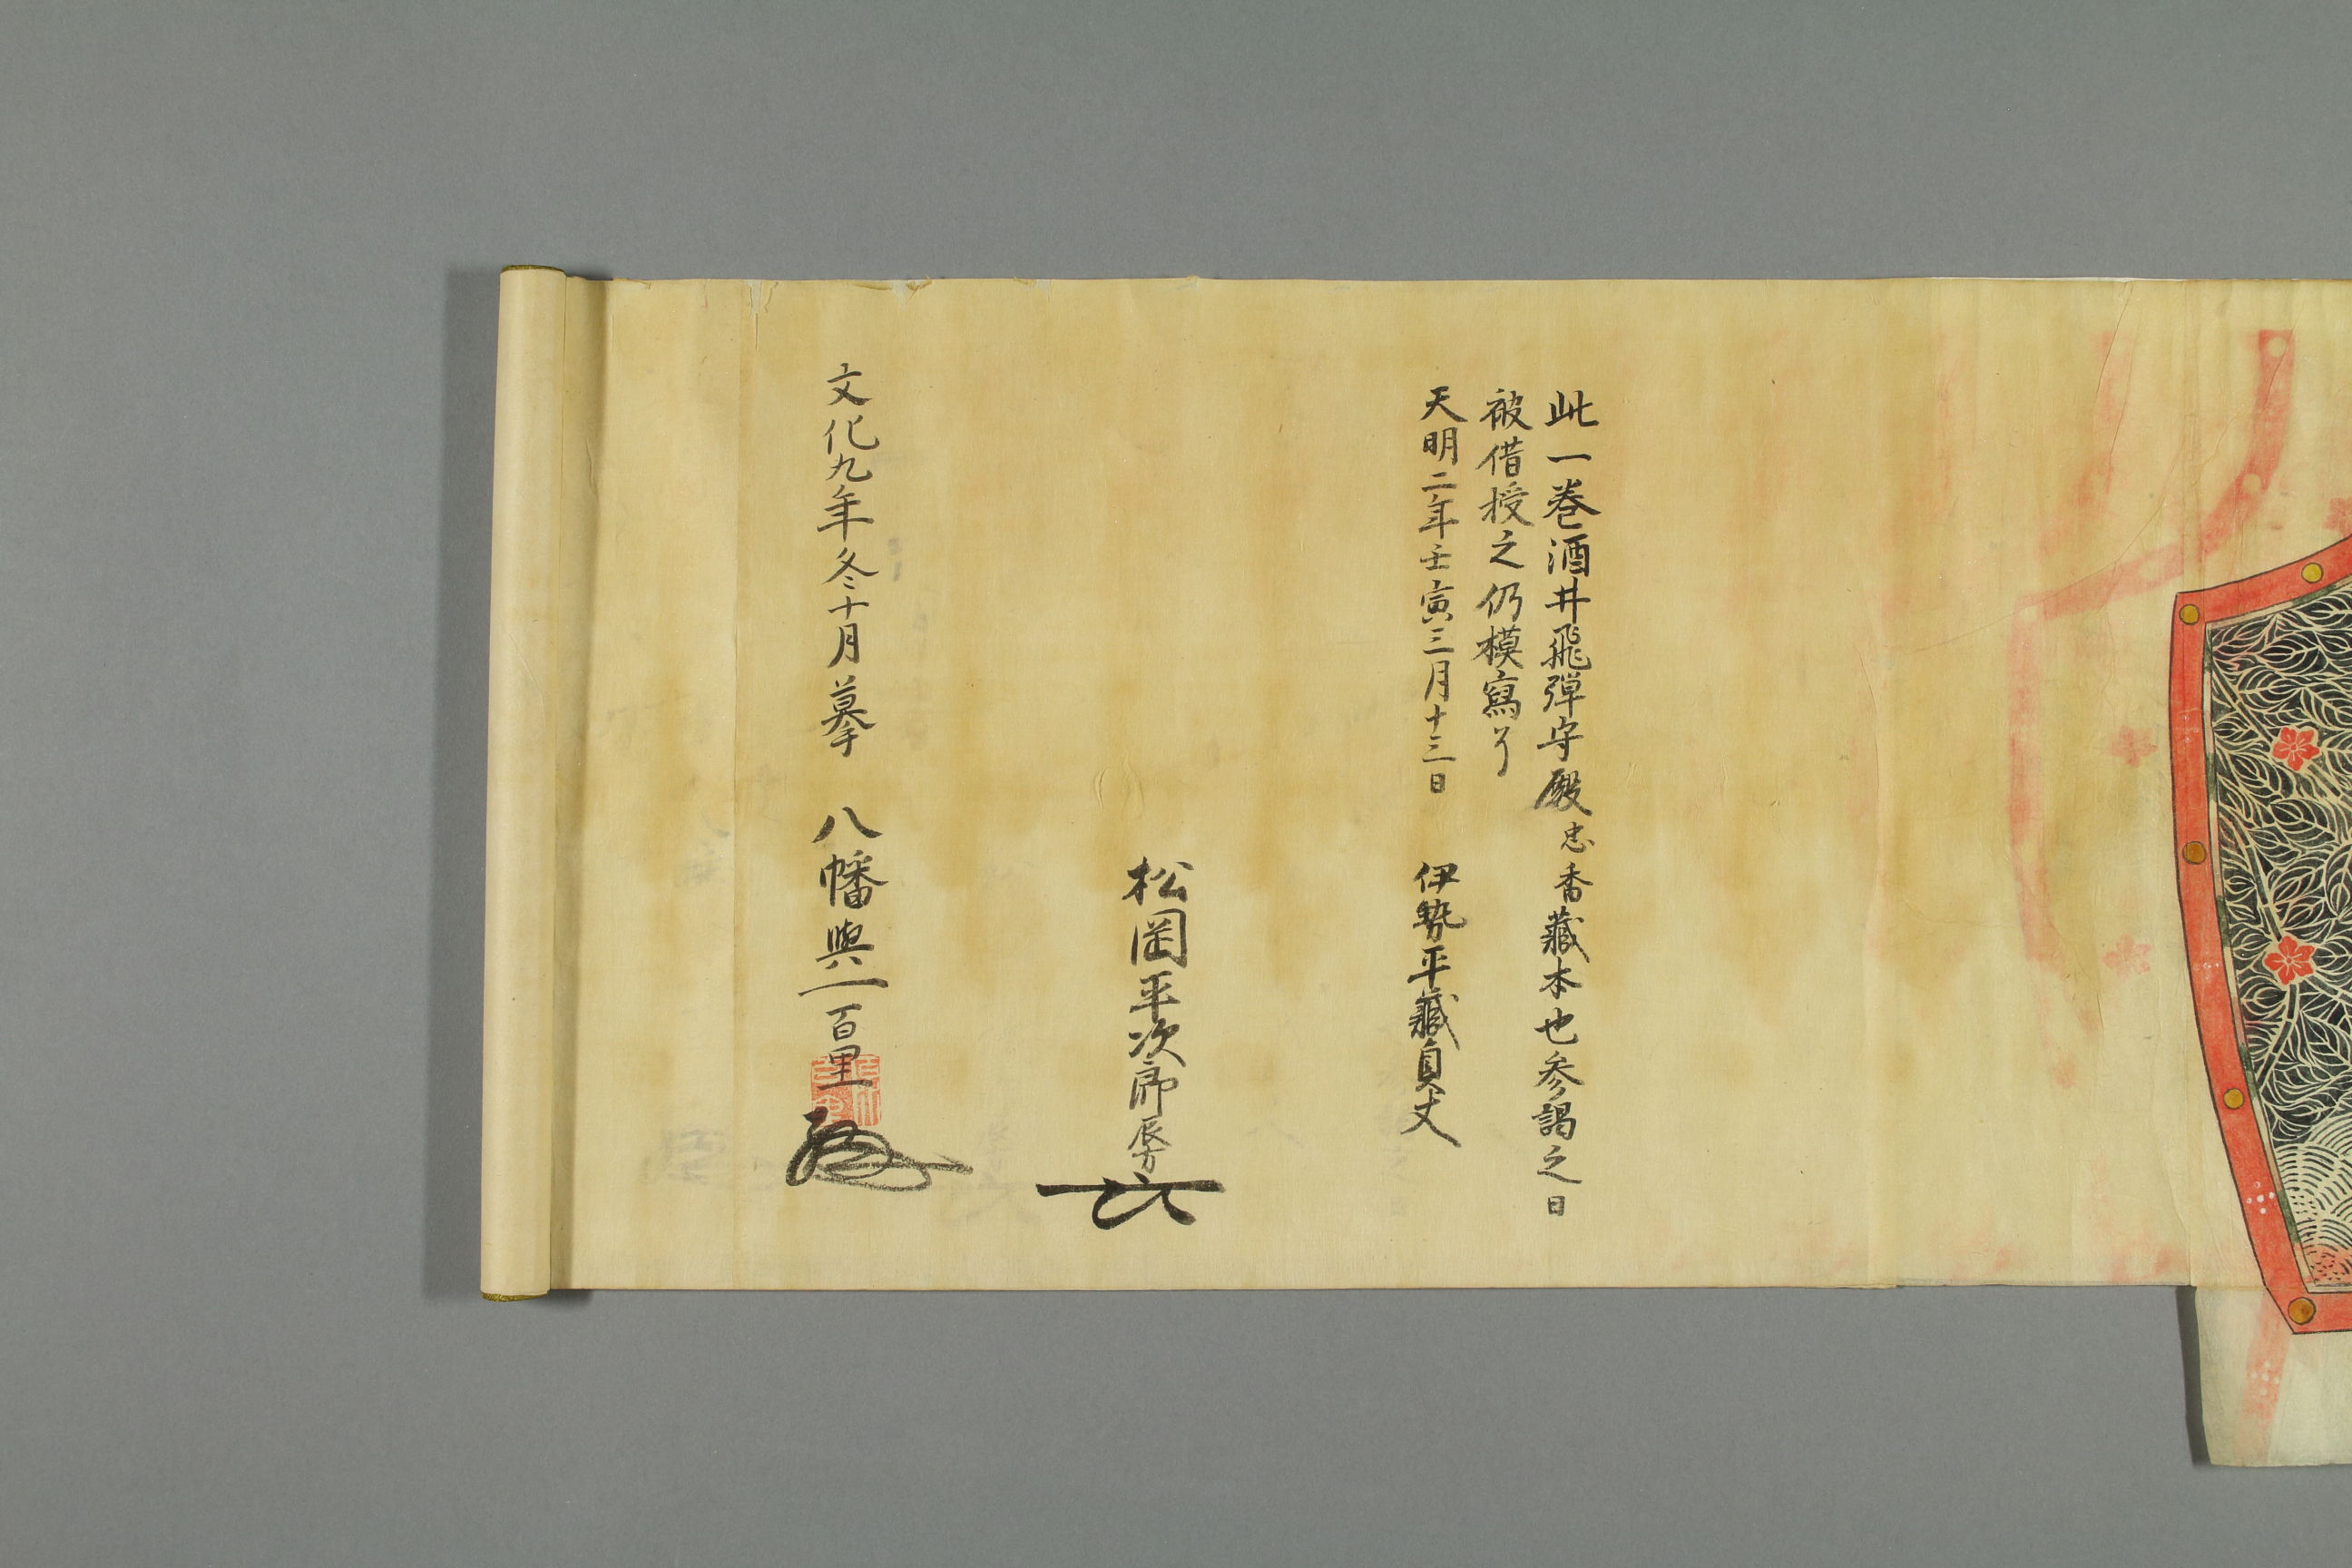 此一巻酒井飛弾守殿忠香藏本也参謁之日
被借授之仍模寫了
天明二年壬寅三月十三日 伊勢平藏貞丈
松岡平次郎辰方
文化九年冬十月摹 八幡與一百里